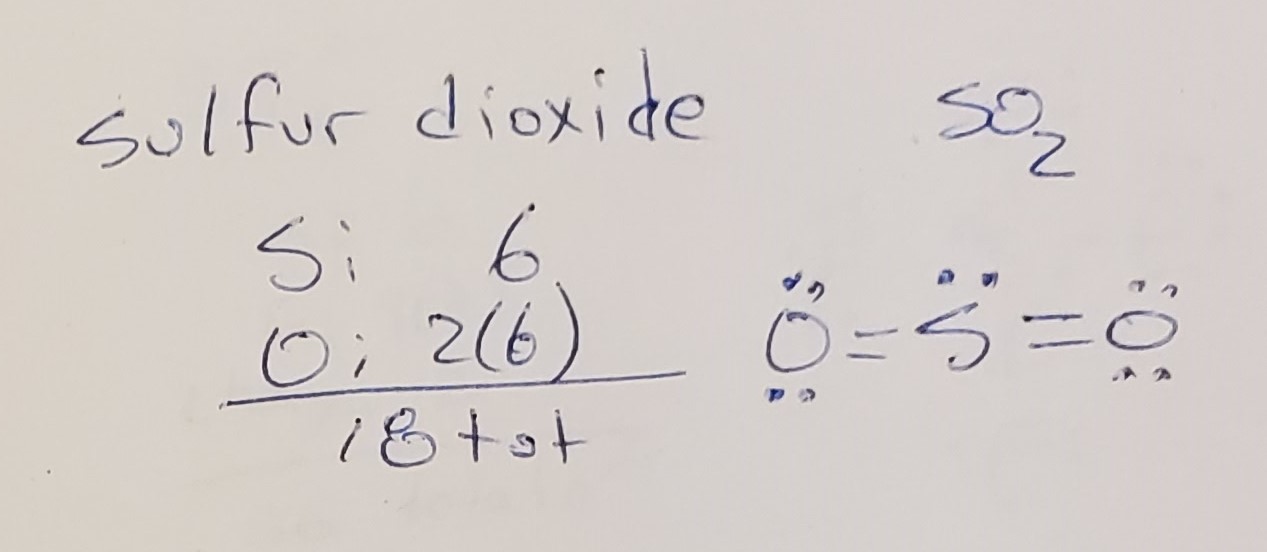 sulfur dioxide SO₂
S: 6
O: 2(6)
18 tot
Ö=S̈=Ö